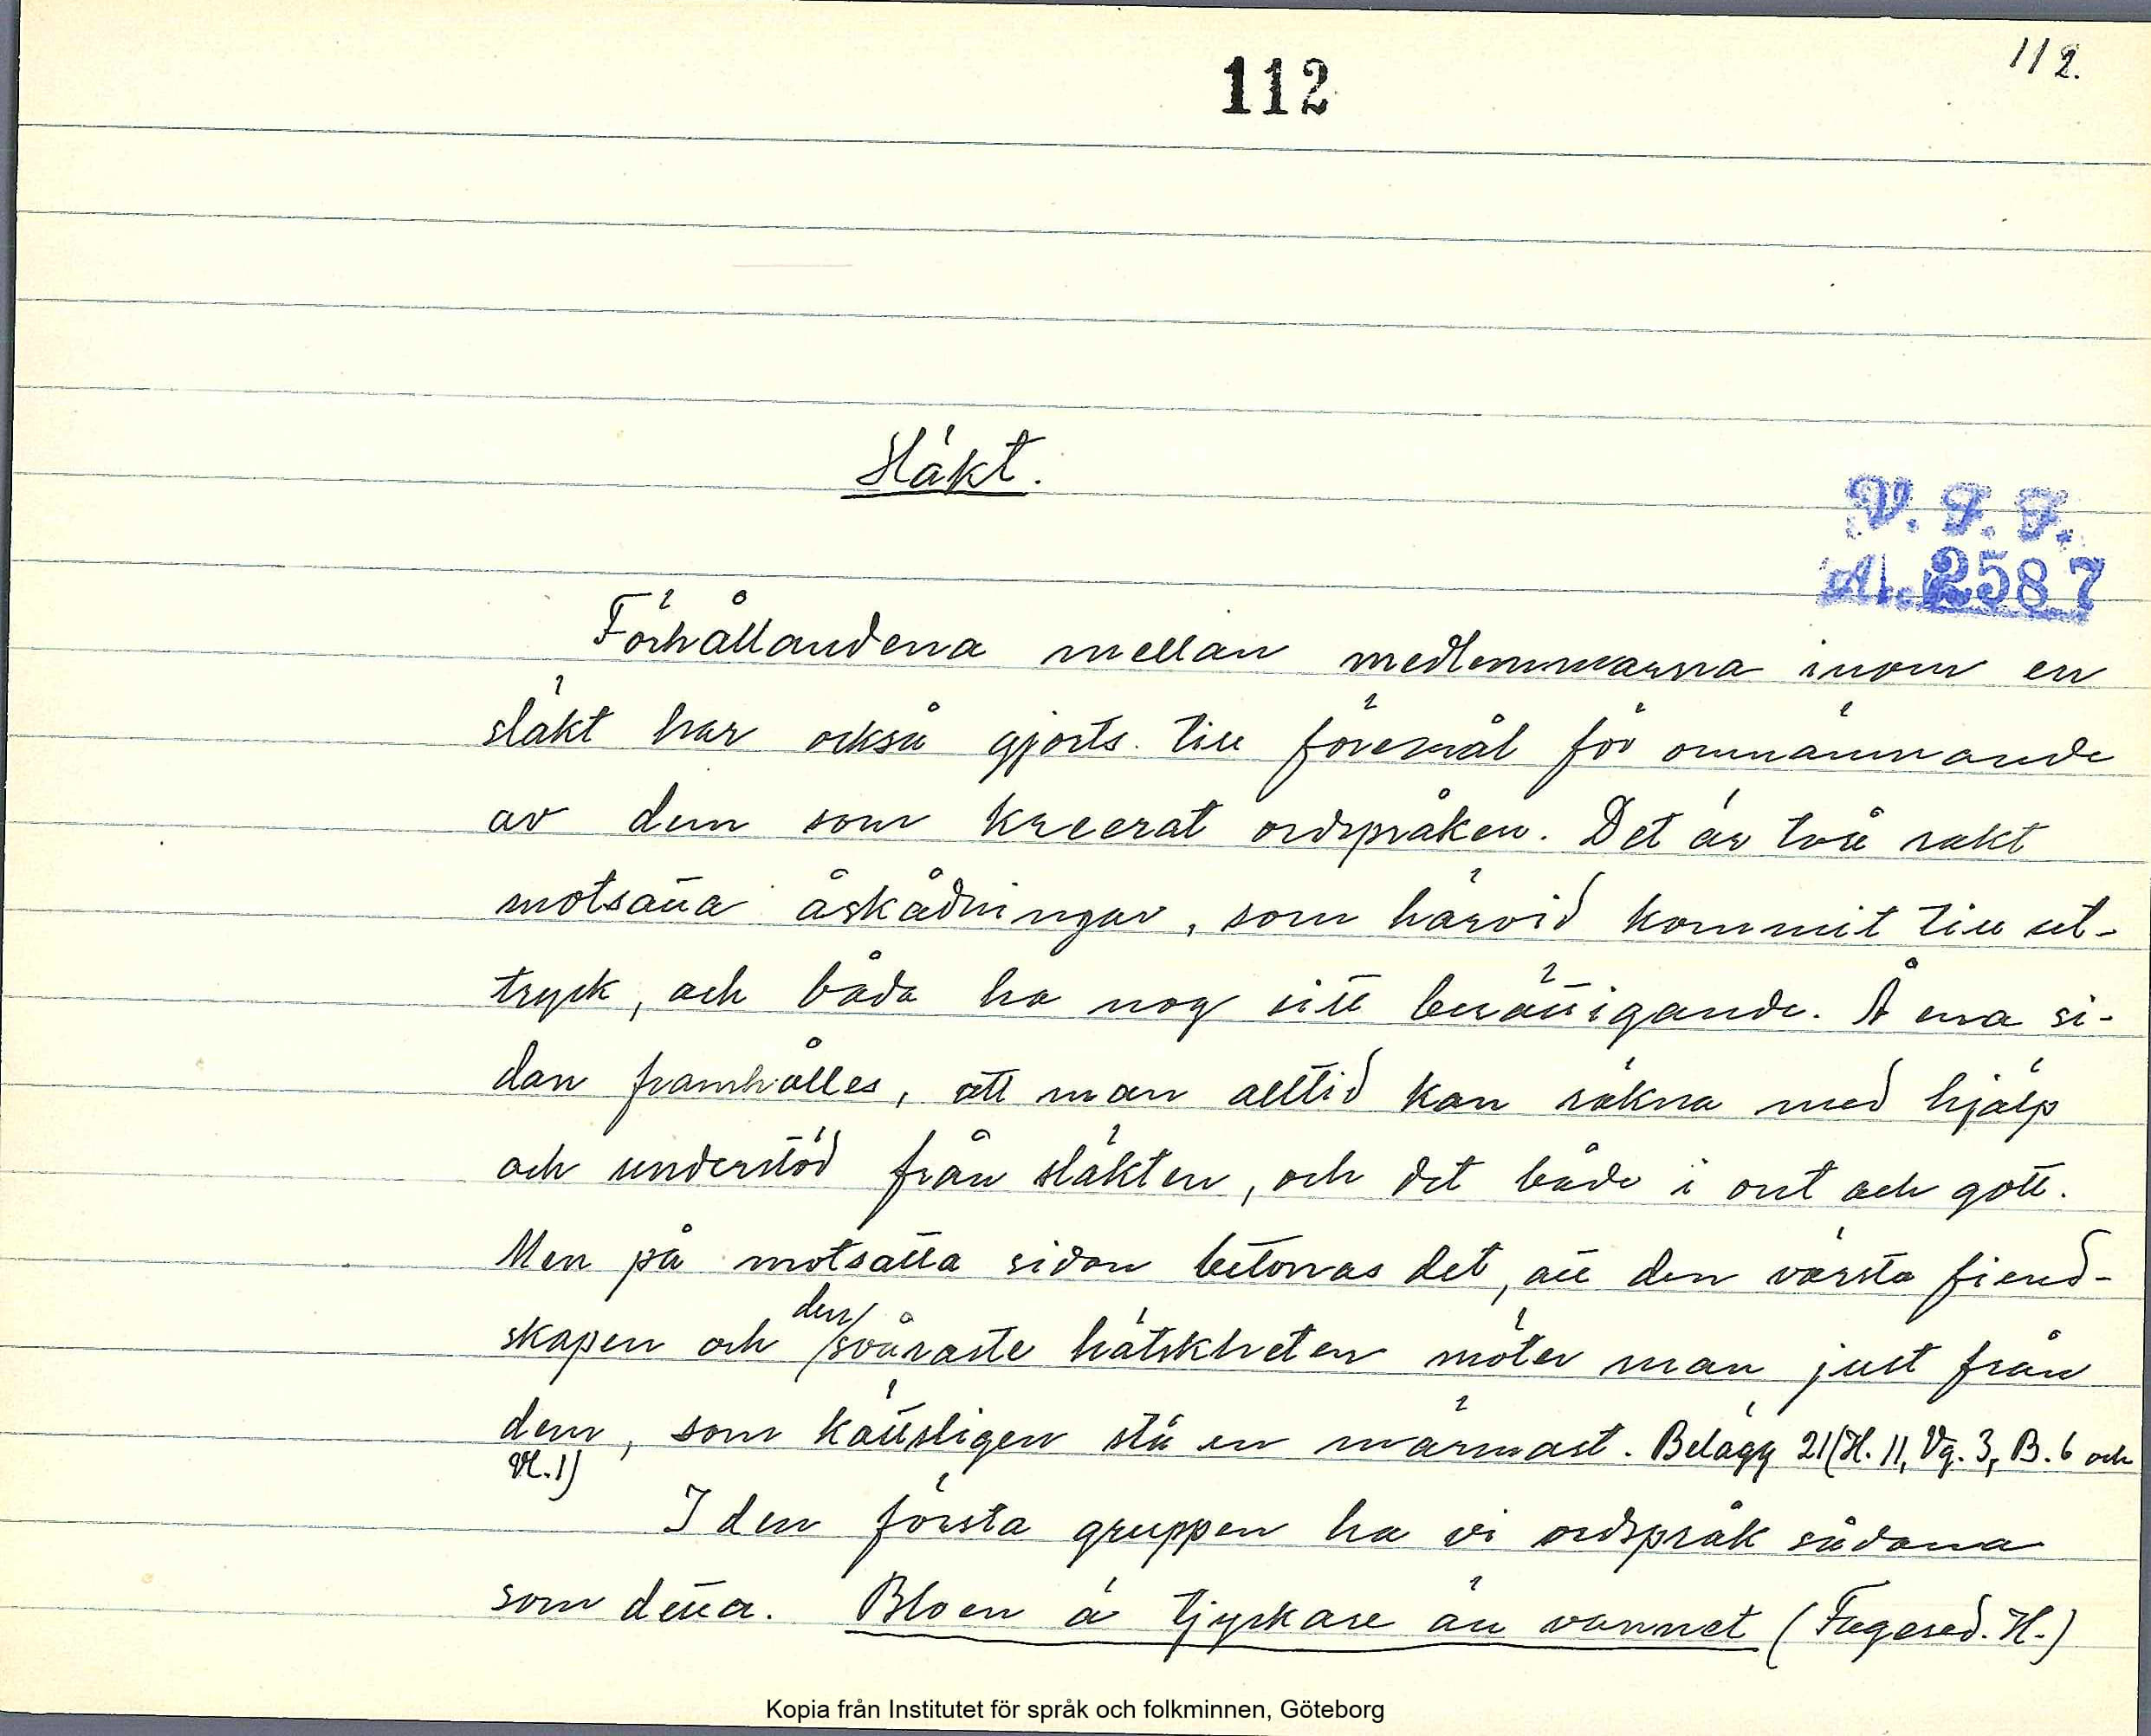 112.
112
Släkt.
V. F. F.
A. 2587
Förhållandena mellan medlemmarna inom en
släkt har också gjorts till föremål för omnämnande
av dem som kreerat ordspråken. Det är två rakt
motsatta åskådningar, som härvid kommit till ut-
tryck, och båda ha nog sitt berättigande. Å ena si-
dan framhålles, att man alltid kan räkna med hjälp
och understöd från släkten, och det både i ont och gott.
Men på motsatta sidan betonas det, att den värsta fiend-
skapen och den svåraste hätskheten möter man just från
dem, som köttsligen stå en närmast. Belägg 21 (H. 11, Vg. 3, B. 6 och
Vl. 1)
I den första gruppen ha vi ordspråk sådana
som detta. Bloen ä tjyckare än vannet (Fagered. H.)
Kopia från Institutet för språk och folkminnen, Göteborg